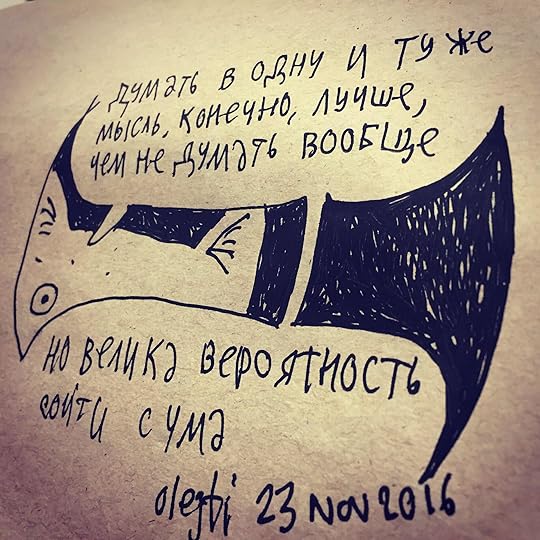 думать в одну и ту же
мысль, конечно, лучше,
чем не думать вообще
но велика вероятность
сойти с ума
olegti 23 NOV 2016